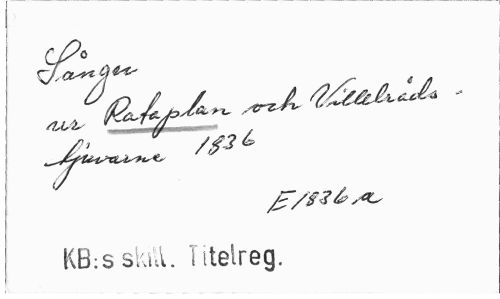 Sånger
ur Rataplan och Villebråds-
tjuvarne 1836
E1836 a
KB:s skill. Titelreg.